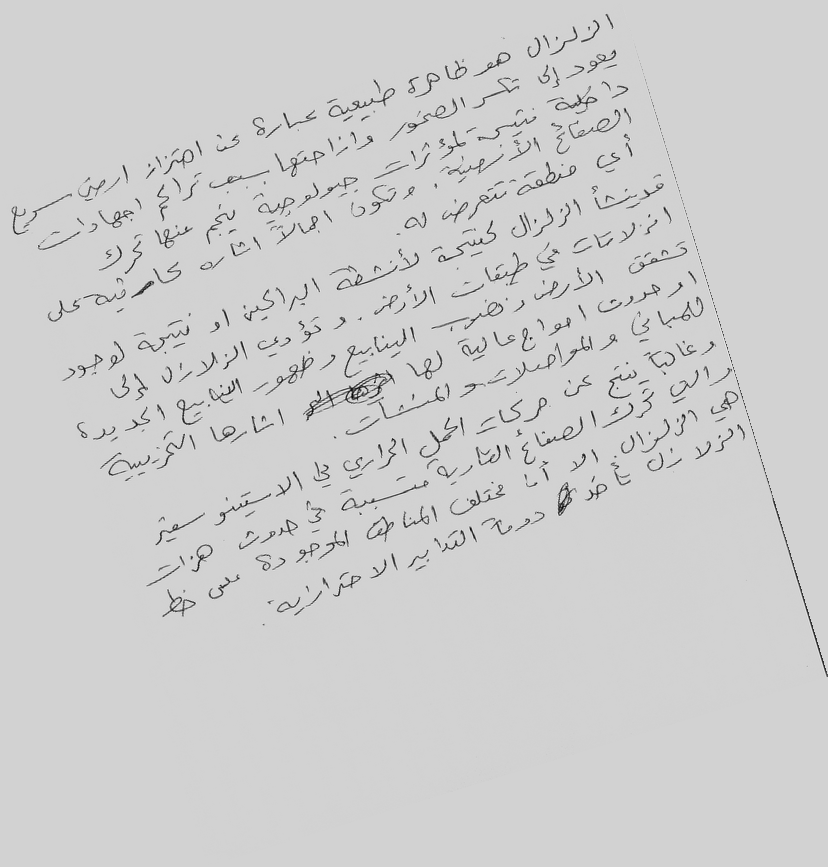 الزلزال هو ظاهرة طبيعية عبارة عن اهتزاز ارضي سريع
يعود إلى تكسر الصخور وازاحتها بسبب تراكم اجهادات
داخلية نتيجة لمؤثرات جيولوجية ينجم عنها تحرك
الصفائح الأرضية، وتكون اجمالاً اثاره كارثية على
أي منطقة تتعرض له.
قد ينشأ الزلزال كنتيجة لأنشطة البراكين او نتيجة لوجود
انزلاقات في طبقات الأرض. وتؤدي الزلازل إلى
تشقق الأرض ونضوب الينابيع وظهور الينابيع الجديدة
او حدوث امواج عالية لها اثارها التخريبية
للمباني والمواصلات والمنشآت.
وغالباً ينتج عن حركات الحمل الحراري في الاستينوسفير
والتي تحرك الصفائح القارية متسببة في حدوث هزات
هي الزلزال. الا أن مختلف المناطق الموجودة على خط
الزلازل تأخذ دوماً التدابير الاحترازية.